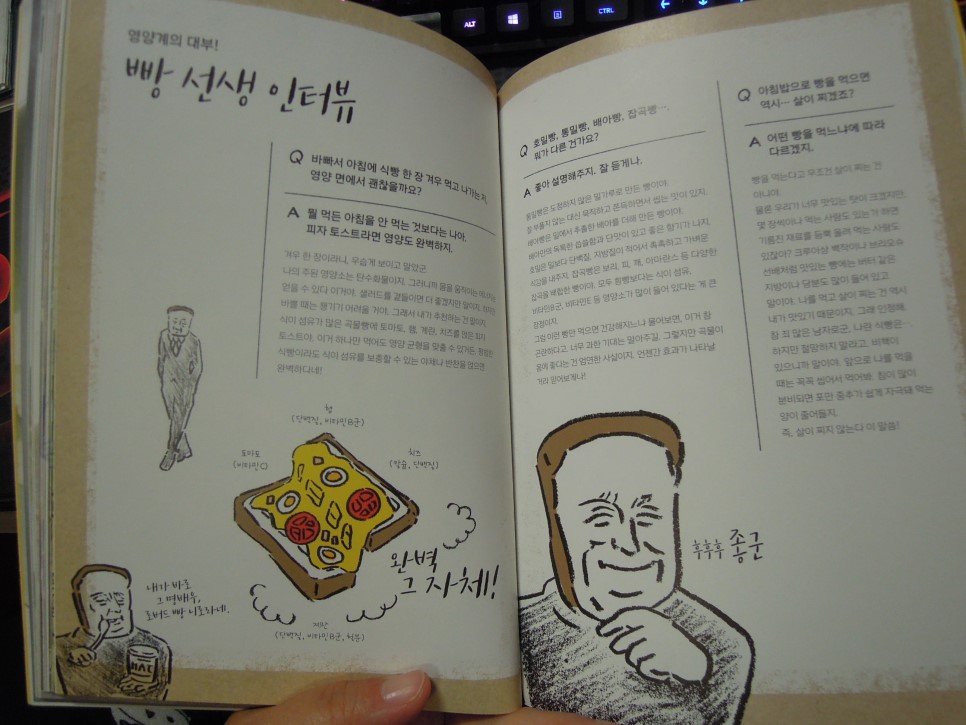 ALT
CTRL
영양계의 대부!
빵 선생 인터뷰
Q 바빠서 아침에 식빵 한 장 겨우 먹고 나가는데,
영양 면에서 괜찮을까요?
A 뭘 먹든 아침을 안 먹는 것보다는 나아.
피자 토스트라면 영양도 완벽하지.
겨우 한 장이라니, 우습게 보이고 말았군.
나의 주된 영양소는 탄수화물이지. 그러니까 몸을 움직이는 에너지는
얻을 수 있다 이거야. 샐러드를 곁들이면 더 좋겠지만 말이지. 하지만
바쁠 때는 챙기기 어려울 거야. 그래서 내가 추천하는 건 말이지,
식이 섬유가 많은 곡물빵에 토마토, 햄, 계란, 치즈를 얹은 피자
토스트야. 이거 하나만 먹어도 영양 균형을 맞출 수 있거든. 평범한
식빵이라도 식이 섬유를 보충할 수 있는 야채나 반찬을 얹으면
완벽하다네!
햄
(단백질, 비타민B군)
토마토
(비타민C)
치즈
(칼슘, 단백질)
계란
(단백질, 비타민B군, 철분)
완벽
그 자체!
내가 바로
그 명배우,
로버드 빵 니로라네.
Q 호밀빵, 통밀빵, 배아빵, 잡곡빵….
뭐가 다른 건가요?
A 좋아 설명해주지. 잘 듣게나.
통밀빵은 도정하지 않은 밀가루로 만든 빵이야.
잘 부풀지 않는 대신 묵직하고 쫀득하면서 씹는 맛이 있지.
배아빵은 밀에서 추출한 배아를 더해 만든 빵이야.
배아만의 독특한 씁쓸함과 단맛이 있고 좋은 향기가 나지.
호밀은 밀보다 단백질, 지방질이 적어서 촉촉하고 가벼운
식감을 내주지. 잡곡빵은 보리, 피, 깨, 아마란스 등 다양한
잡곡을 배합한 빵이야. 모두 흰빵보다는 식이 섬유,
비타민B군, 비타민E 등 영양소가 많이 들어 있다는 게 큰
장점이지.
그럼 이런 빵만 먹으면 건강해지느냐 물어보면, 이거 참
곤란하다고. 너무 과한 기대는 말아주길. 그렇지만 곡물이
몸에 좋다는 건 엄연한 사실이지. 언젠간 효과가 나타날
거라 믿어보게나!
Q 아침밥으로 빵을 먹으면
역시… 살이 찌겠죠?
A 어떤 빵을 먹느냐에 따라
다르겠지.
빵을 먹는다고 무조건 살이 찌는 건
아니야.
물론 우리가 너무 맛있는 탓이 크겠지만,
몇 장씩이나 먹는 사람도 있는가 하면
기름진 재료를 듬뿍 올려 먹는 사람도
있잖아? 크루아상 백작이나 브리오슈
선배처럼 맛있는 빵에는 버터 같은
지방이나 당분도 많이 들어 있고
말이야. 나를 먹고 살이 찌는 건 역시
내가 맛있기 때문이지. 그래 인정해.
참 죄 많은 남자로군, 나란 식빵은….
하지만 절망하지 말라고. 비책이
있으니까 말이야. 앞으로 나를 먹을
때는 꼭꼭 씹어서 먹어봐. 침이 많이
분비되면 포만 중추가 쉽게 자극돼 먹는
양이 줄어들지.
즉, 살이 찌지 않는다 이 말씀!
후후후 좋군